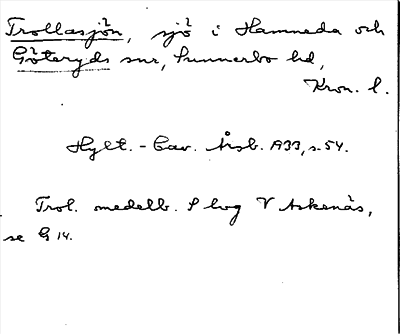 Trollasjön, sjö i Hamneda och
Göteryds snr, Sunnerbo hd,
Kron. l.
Hylt.-Cav. Årsb. 1933, s. 54.
Trol. medelb. S lvg V Askenäs,
se G 14.